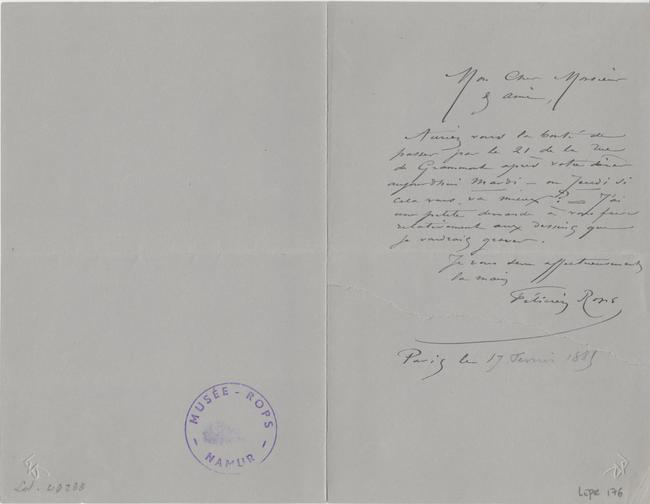 Mon Cher Monsieur
& ami,
Auriez vous la bonté de
passer par le 21 de la rue
de Grammont après votre dîner
aujourdhui Mardi – ou Jeudi si
cela vous va mieux ? – J'ai
une petite demande à vous faire
relativement aux dessins que
je voudrais graver.
Je vous serre affectueusement
la main
Félicien Rops
Paris le 17 Fevrier 188
MUSÉE - ROPS
NAMUR
LEpr 176